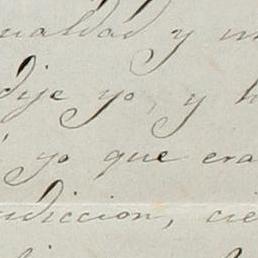 ualdad y
dije yo, y
yo que era
diccion, cie